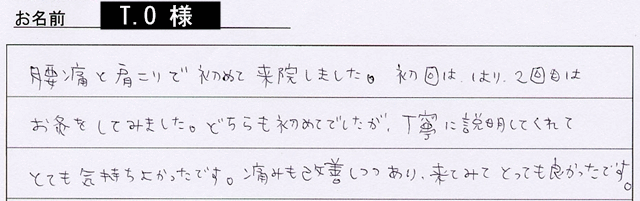 お名前 T.O 様
腰痛と肩こりで初めて来院しました。初回は、はり、2回目は
お灸をしてみました。どちらも初めてでしたが、丁寧に説明してくれて
とても気持ちよかったです。痛みも改善しつつあり、来てみてとっても良かったです。